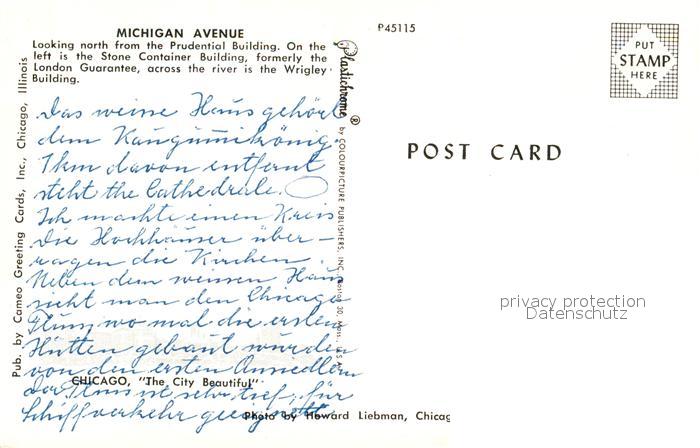 MICHIGAN AVENUE
Looking north from the Prudential Building. On the
left is the Stone Container Building, formerly the
London Guarantee, across the river is the Wrigley
Building.
Das weisse Haus gehört
dem Kaugumikönig.
1km davon entfernt
steht the Cathedrale.
Ich machte einen Kreis
Die Hochhäuser über-
ragen die Kirchen.
Neben dem weissen Haus
sieht man den Chicago
Fluss, wo mal die ersten
Hütten gebaut wurden
von den ersten Ansiedlern
CHICAGO, "The City Beautiful"
Der Fluss ist sehr tief, für
Schiffverkehr geeignet.
Photo by Howard Liebman, Chicag
Pub. by Cameo Greeting Cards, Inc., Chicago, Illinois
Plastichrome ® by COLOURPICTURE PUBLISHERS, INC., Boston 30, Mass., U.S.A.
P45115
POST CARD
PUT
STAMP
HERE
privacy protection
Datenschutz